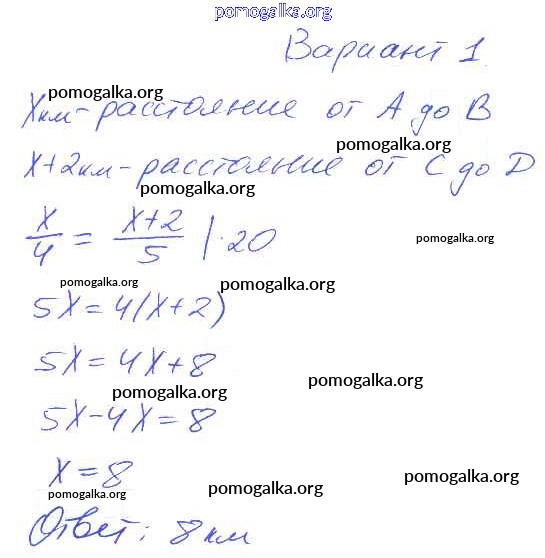 pomogalka.org
Вариант 1
pomogalka.org
Xкм-расстояние от А до В
pomogalka.org
X+2км-расстояние от С до D
pomogalka.org
X/4 = X+2/5 |·20
pomogalka.org
pomogalka.org pomogalka.org
5X=4(X+2)
5X=4X+8
pomogalka.org
pomogalka.org
5X-4X=8
X=8
pomogalka.org
pomogalka.org pomogalka.org
Ответ: 8км